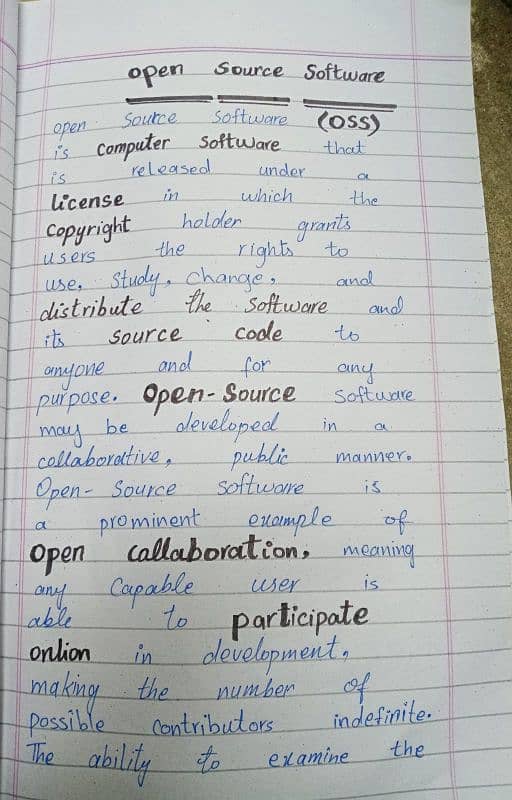 open Source Software
open Source Software (OSS)
is computer Software that
is released under a
license in which the
Copyright holder grants
users the rights to
use, Study, change, and
distribute the Software and
its source code to
anyone and for any
purpose. Open-Source Software
may be developed in a
collaborative, public manner.
Open- Source Software is
a prominent example of
Open callaboration, meaning
any Capable user is
able to participate
onlion in development,
making the number of
possible Contributors indefinite.
The ability to examine the